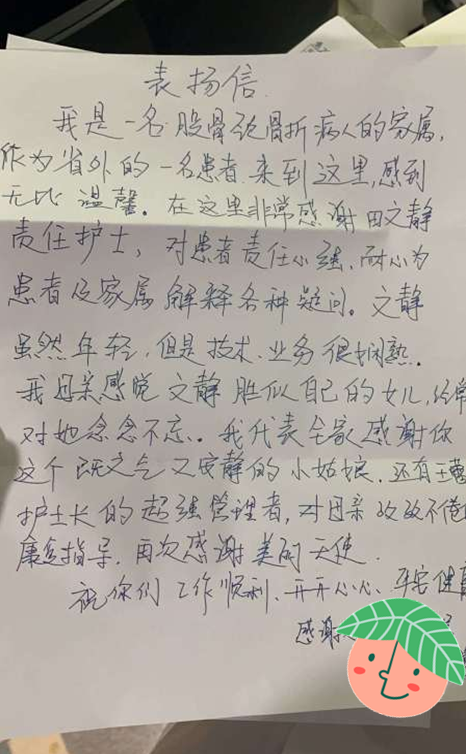 表扬信
我是一名股骨颈骨折病人的家属,
作为省外的一名患者来到这里,感到
无比温馨。在这里非常感谢田文静
责任护士,对患者责任心强,耐心为
患者及家属解释各种疑问。文静
虽然年轻,但是技术、业务很娴熟.
我母亲感觉文静胜似自己的女儿,经常
对她念念不忘.我代表全家感谢你
这个既文气又安静的小姑娘.还有王
护士长的超强管理者,对母亲孜孜不倦
康复指导.再次感谢美丽天使.
祝你们工作顺利、开开心心、平安健
感谢